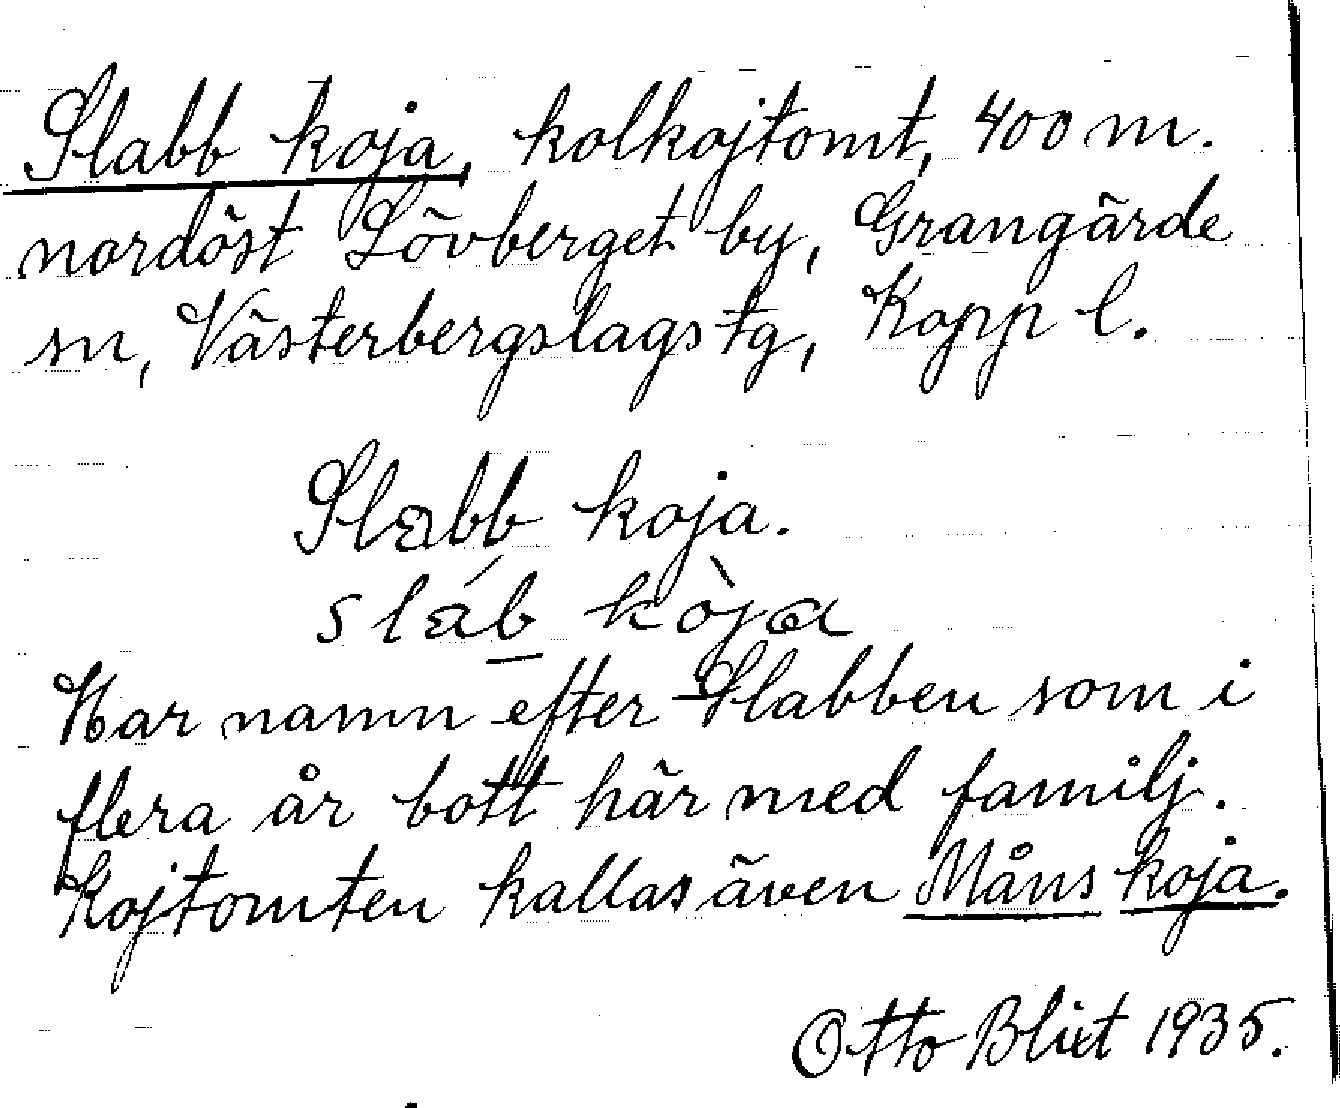 Slabb koja, kolkojtomt, 400 m.
nordöst Lövberget by, Grangärde
sn, Västerbergslags tg, Kopp l.
Slabb koja.
slab́ kòja
Har namn efter Slabben som i
flera år bott här med familj.
Kojtomten kallas även Måns koja.
Otto Blixt 1935.